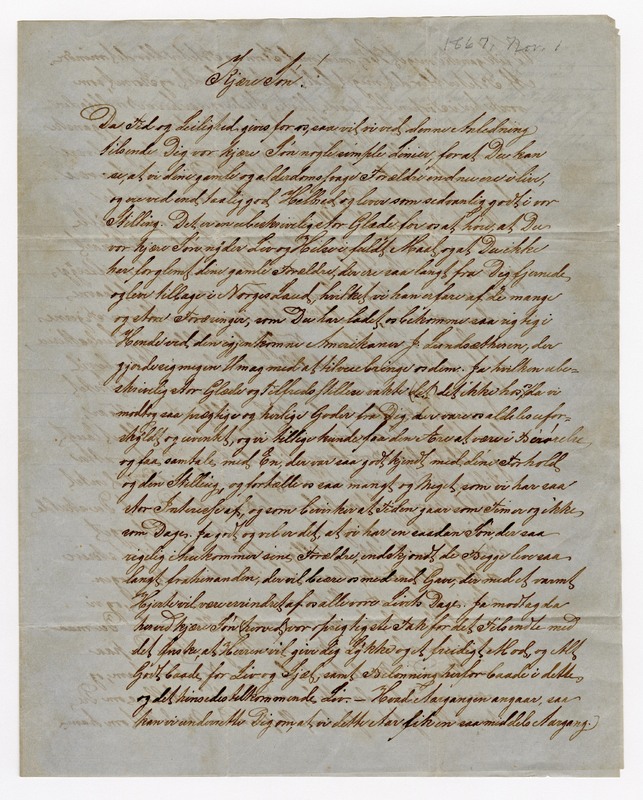 1867, Nov. 1
Kjære Søn!
Da Tid og Leilighed gives for os, saa vil vi ved denne Anledning
tilsende Dig vor kjære Søn nogle simple Linier for at Du kan
se, at vi dine gamle og alderdomssvage Forældre endnu ere i live,
og ere ved en taalig god Helbred og lever som sedvanlig godt i vor
Stilling. Det er en ubeskrivelig stor Glæde for os at høre, at Du
vor kjære Søn nyder Liv og Helse i fuldt Maal, og at Du ikke
har forglemt dine gamle Forældre, der ere saa langt fra Dig fjernede
og lever tilbage i Norges Land, hvilket vi kan erfare af de mange
og store Foræringer, som Du har ladet os bekomme saa rigtig i
Hende ved den hjemkomne Amerikaner J. Landsætheren, der
gjorde sig megen Umag med at tilveiebringe os dem. Ja hvilken ube-
skrivelig stor Glæde og Tilfredsstillelse vakte det ikke hos os, da vi
modtog saa prægtige og herlige Goder fra Dig, der vare os aldeles ufor-
skyldt og uventet, og vi tillige kunde faa den Ære at være i Berørelse
og faa samtale med En, der var saa godt kjendt med dine Forhold
og din Stilling, og fortælle os saa mangt og meget, som vi har saa
stor Interesse af, og som bevirker at Tiden gaar som Timer og ikke
som Dage. Ja godt og vel er det, at vi har en saadan Søn der saa
rigelig ihukommer sine Forældre, endskjøndt de Begge lever saa
langt fra hinanden, der vil beære os med en Gave, der med et varmt
Hjerte vil være erindret af os alle vore Livs Dage. Ja modtag da
herved kjære Søn hoved vor prægtigste Tak for det Tilsendte med
det Ønske, at Herren vil give Dig Lykke og et freidigt Mod, og Alt
Godt baade for Liv og Sjæl, samt Belønning herfor baade i dette
og det hinsides tilkommende Liv. — Hvad Aargangen angaar, saa
kan vi underrette Dig om, at vi dette Aar fik en saa middels Aargang.